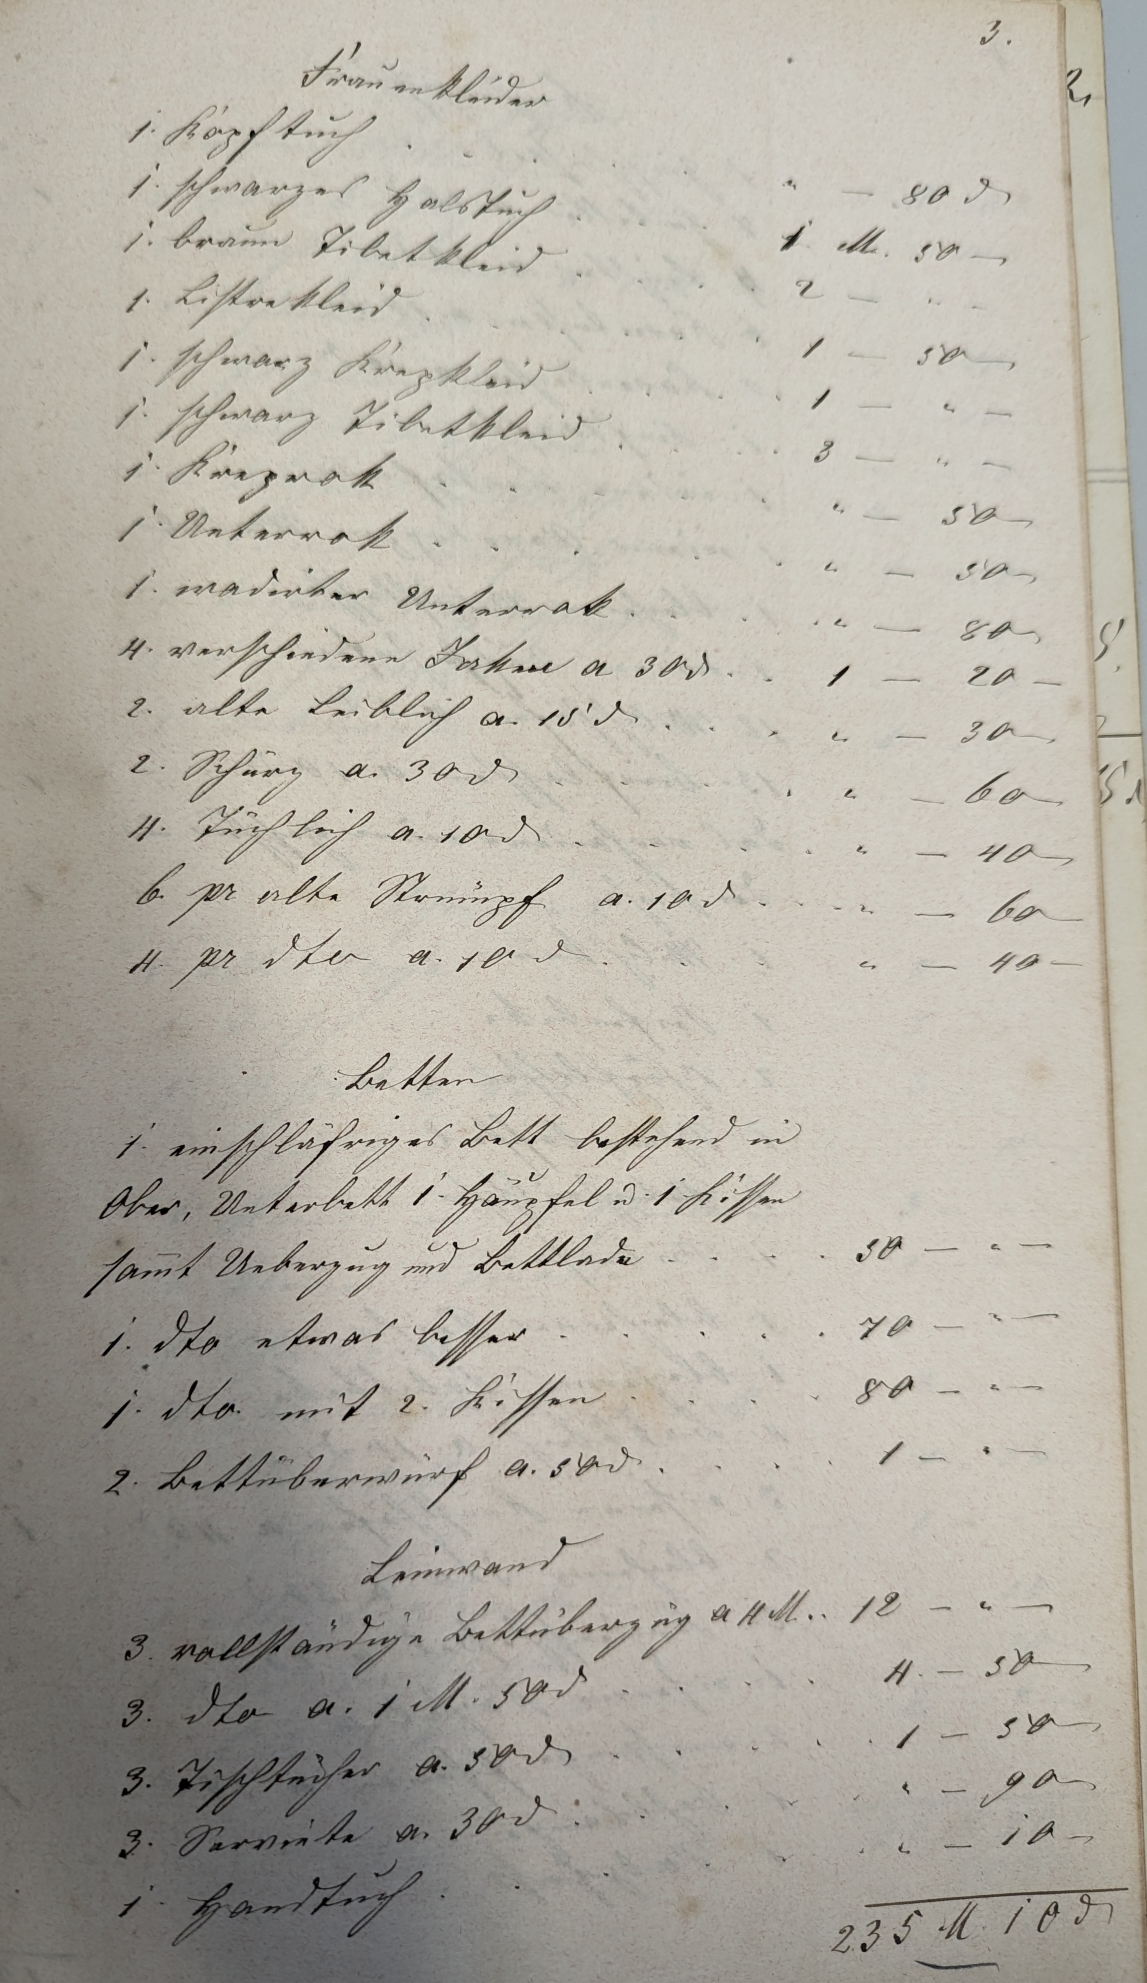 3.
Frauenkleider
1. Kopftuch . . . . " — 80 ₰
1. schwarzes Halstuch . . . 1 M. 50 —
1. braun Tibetkleid . . . . 2 — " —
1. Listrekleid . . . . 1 — 50 —
1. schwarz Krepkleid . . . . 1 — " —
1. schwarz Tibetkleid . . . . 3 — " —
1. Kreprok . . . . " — 50 —
1. Unterrok . . . . " — 50 —
1. wadirter Unterrok . . . " — 80 —
4. verschiedene Jaken a 30 ₰ . . 1 — 20 —
2. alte Leiblich a. 15 ₰ . . . " — 30 —
2. Schürz a. 30 ₰ . . . . " — 60 —
4. Tüchlich a. 10 ₰ . . . . " — 40 —
6. pr alte Strümpf a. 10 ₰ . . . " — 60 —
4. pr dto a. 10 ₰ . . . " — 40 —
Betten
1. einschläfriges Bett bestehend in
Ober, Unterbett 1. Häupfel u. 1 Kissen
samt Ueberzug und Bettlade . . . . 50 — " —
1. dto etwas besser . . . . . 70 — " —
1. dto. mit 2. Kissen . . . . 80 — " —
2. Bettüberwürf a. 50 ₰ . . . . 1 — " —
Leinwand
3. vollständige Bettüberzüg a 4 M. . . 12 — " —
3. dto a. 1 M. 50 ₰ . . . . 4. — 50 —
3. Tischtücher a. 50 ₰ . . . . 1 — 50 —
3. Serviete a. 30 ₰ . . . . " — 90 —
1. Handtuch . . . . " — 10 —
235 M. 10 ₰